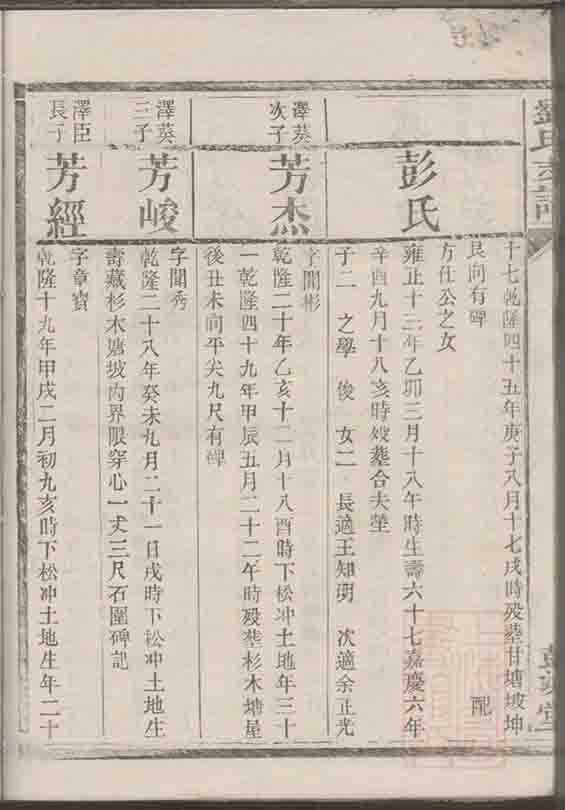 劉氏支譜
彭城堂
十七乾隆四十五年庚子八月十七戌時殁塟甘塘坡坤
艮向有碑
配
彭氏
方仕公之女
雍正十三年乙卯三月十八午時生壽六十七嘉慶六年
辛酉九月十八亥時殁塟合夫塋
子二 之學 俊 女二 長適王知明 次適余正光
澤葵
次子
芳杰
字聞彬
乾隆二十年乙亥十二月十八酉時下松冲土地年三十
一乾隆四十九年甲辰五月二十二午時殁塟杉木塘屋
後丑未向平尖九尺有碑
澤葵
三子
芳峻
字聞秀
乾隆二十八年癸未九月二十一日戌時下松冲土地生
壽藏杉木塘坡內界限穿心一丈三尺石圍碑記
澤臣
長子
芳經
字章寶
乾隆十九年甲戌二月初九亥時下松冲土地生年二十